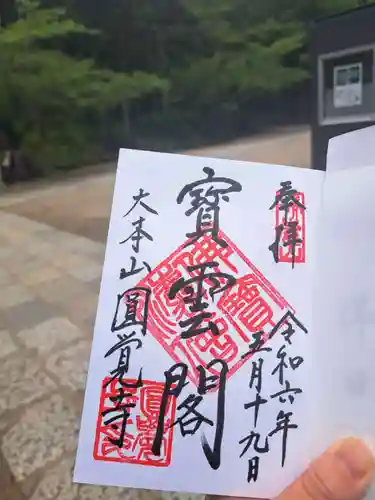 奉拝
令和六年
五月十九日
寶雲閣
大本山圓覚寺